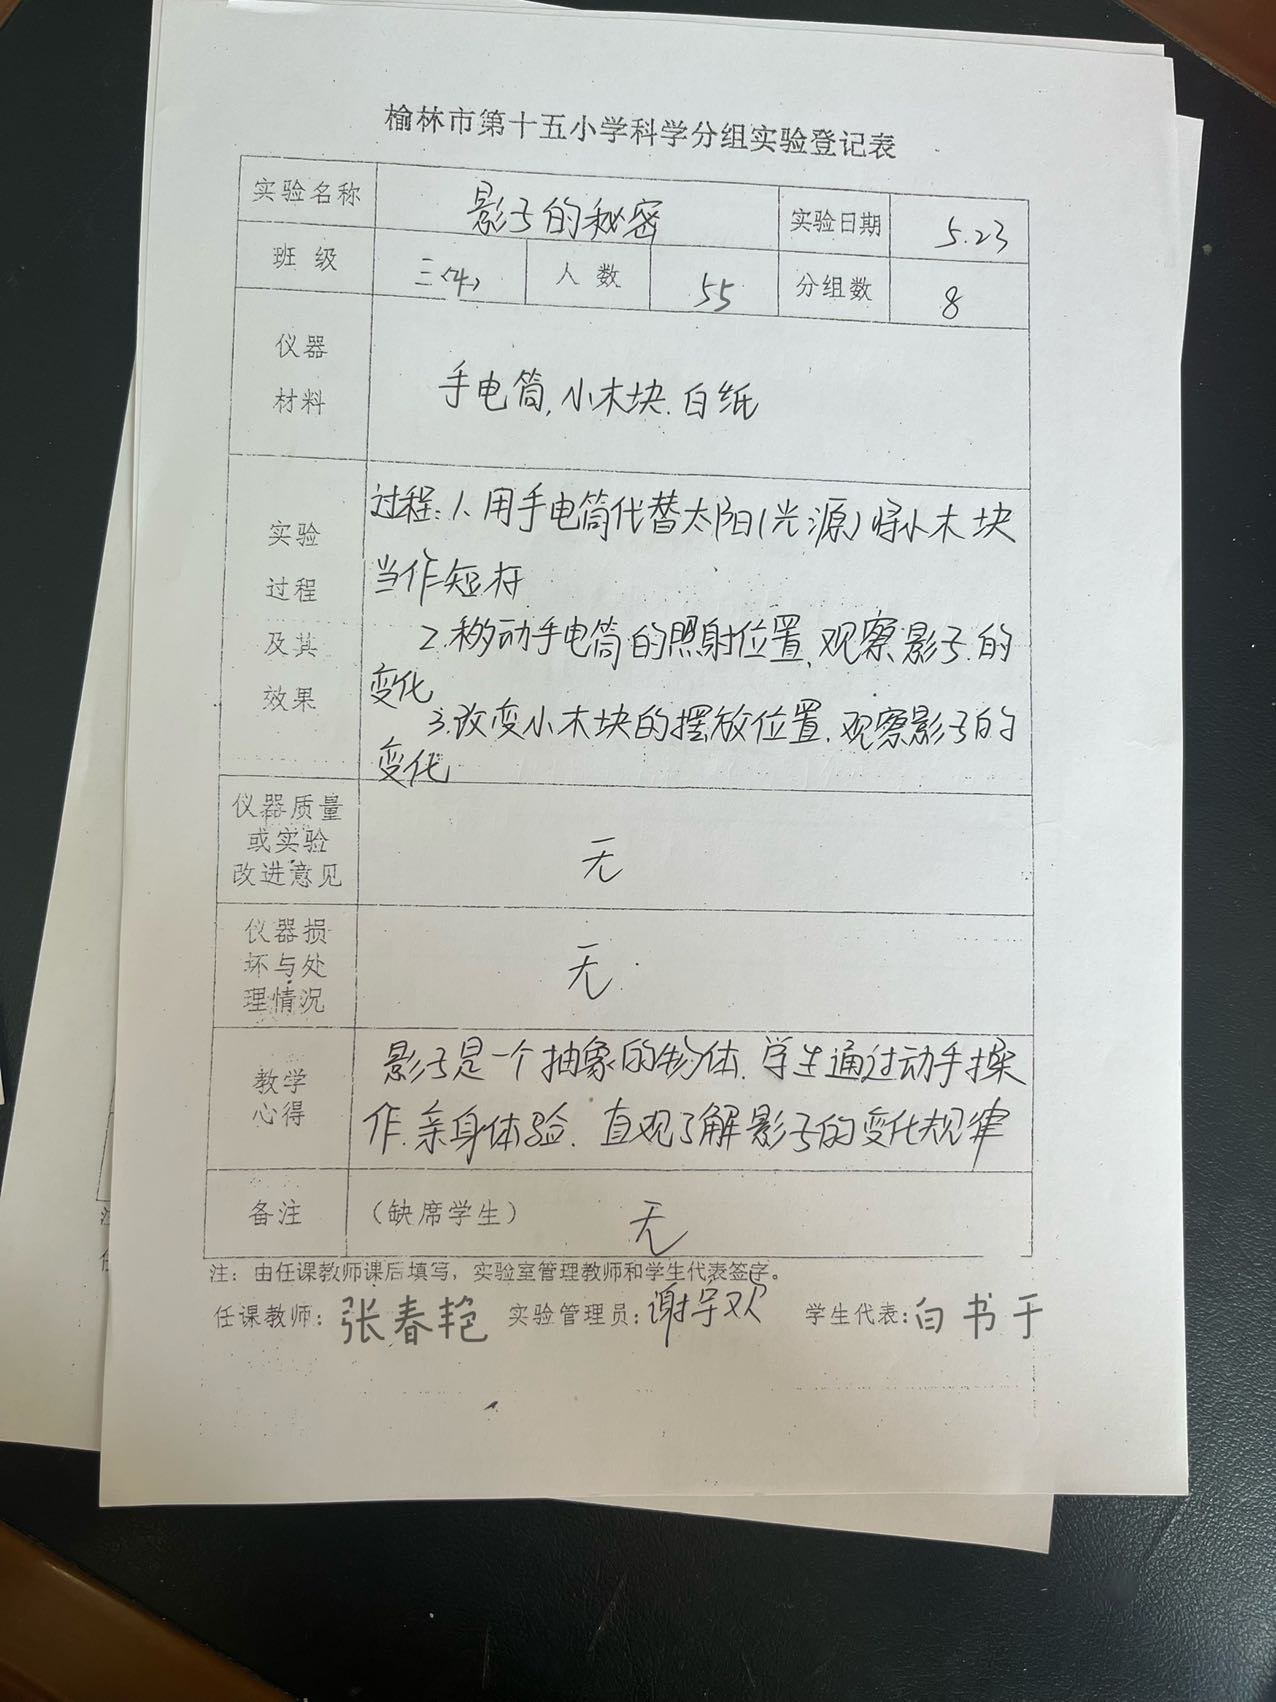 榆林市第十五小学科学分组实验登记表
实验名称 影子的秘密 实验日期 5.23
班级 三<4> 人数 55 分组数 8
仪器
材料
手电筒,小木块.白纸
实验
过程
及其
效果
过程:1.用手电筒代替太阳(光源)将小木块
当作短杆
2.移动手电筒的照射位置.观察影子的
变化
3.改变小木块的摆放位置.观察影子的
变化
仪器质量
或实验
改进意见
无
仪器损
坏与处
理情况
无
教学
心得
影子是一个抽象的物体.学生通过动手操
作.亲身体验.直观了解影子的变化规律
备注 (缺席学生) 无
注:由任课教师课后填写,实验室管理教师和学生代表签字。
任课教师:张春艳 实验管理员:谢 欢 学生代表:白书于